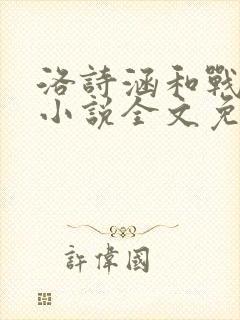 洛詩涵和戰
小說全文免
許偉國